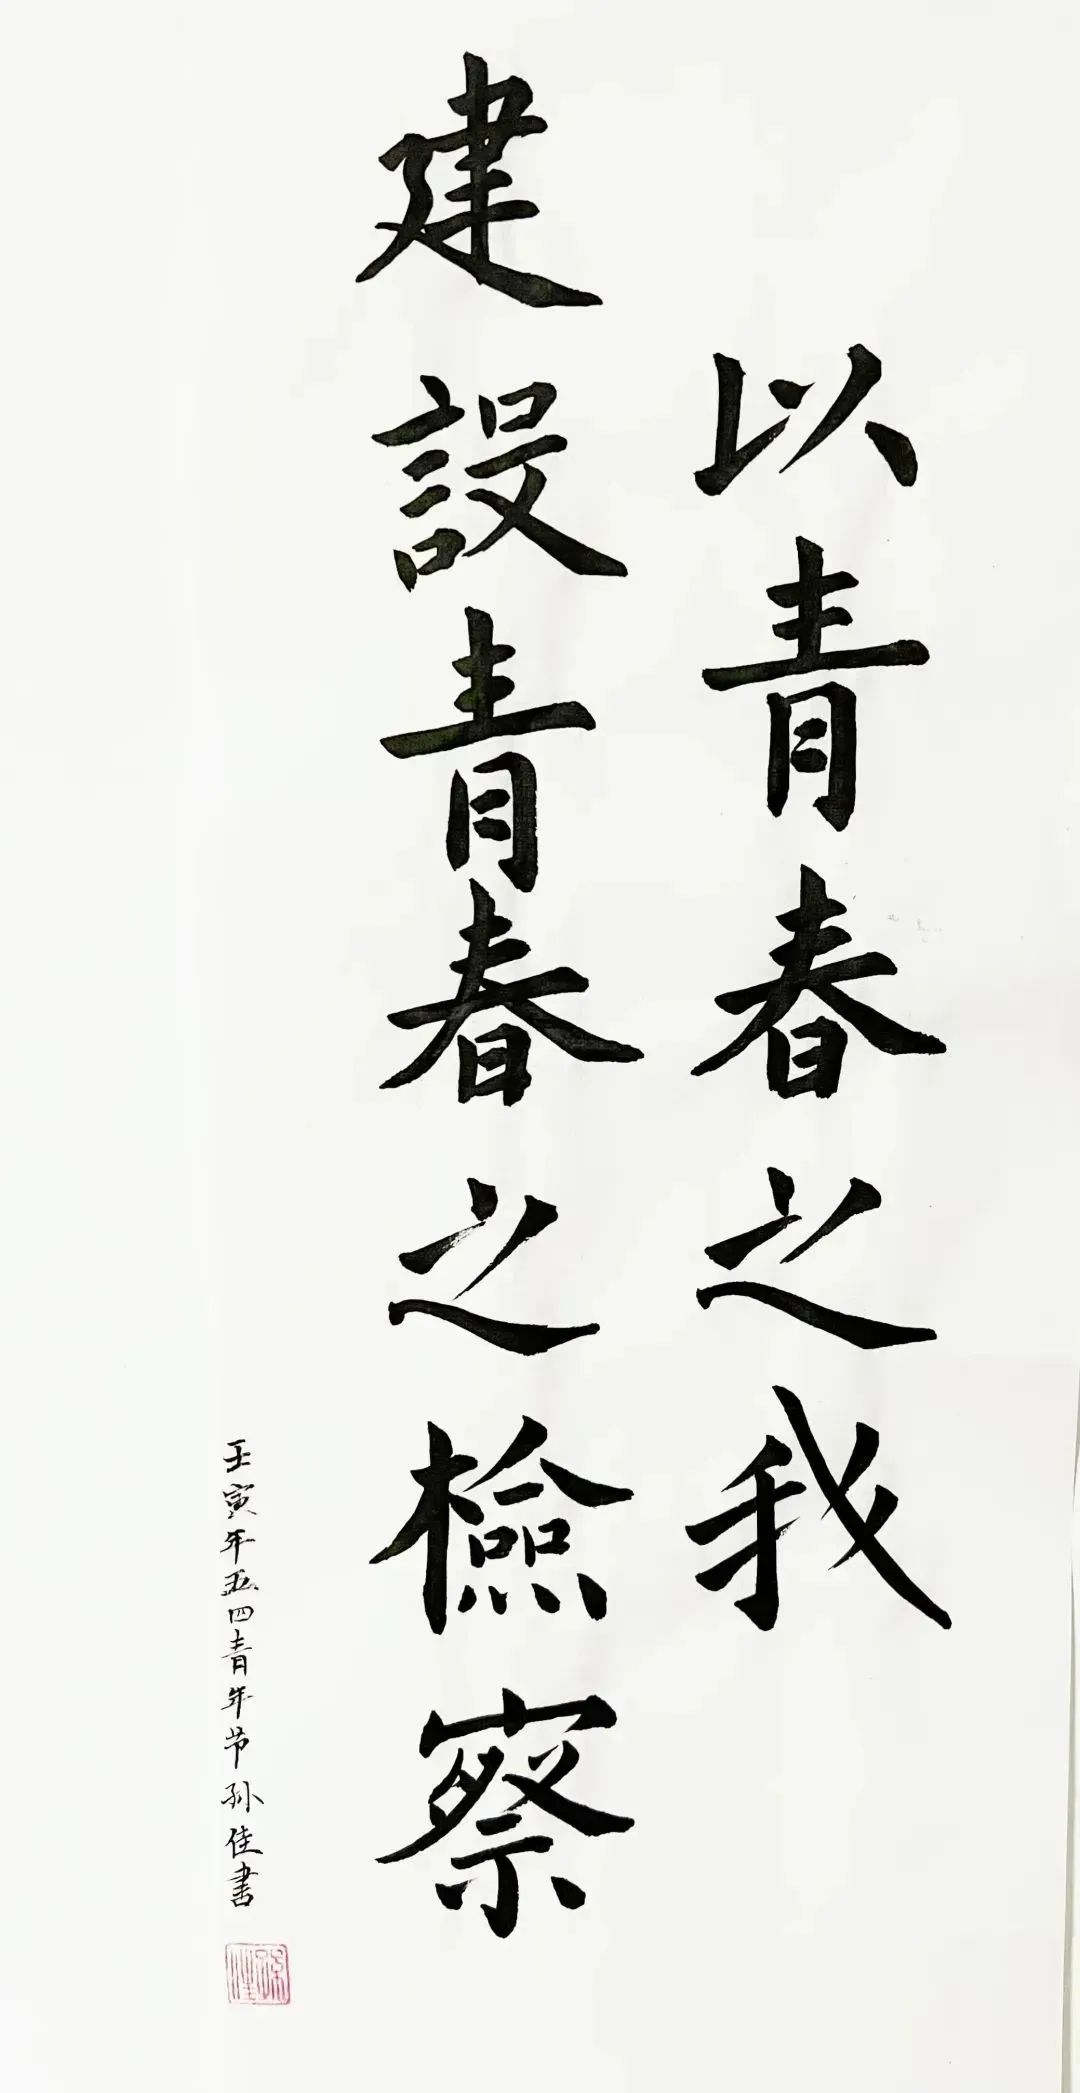 以青春之我
建設青春之檢察
壬寅年五四青年节孙佳書
孫佳